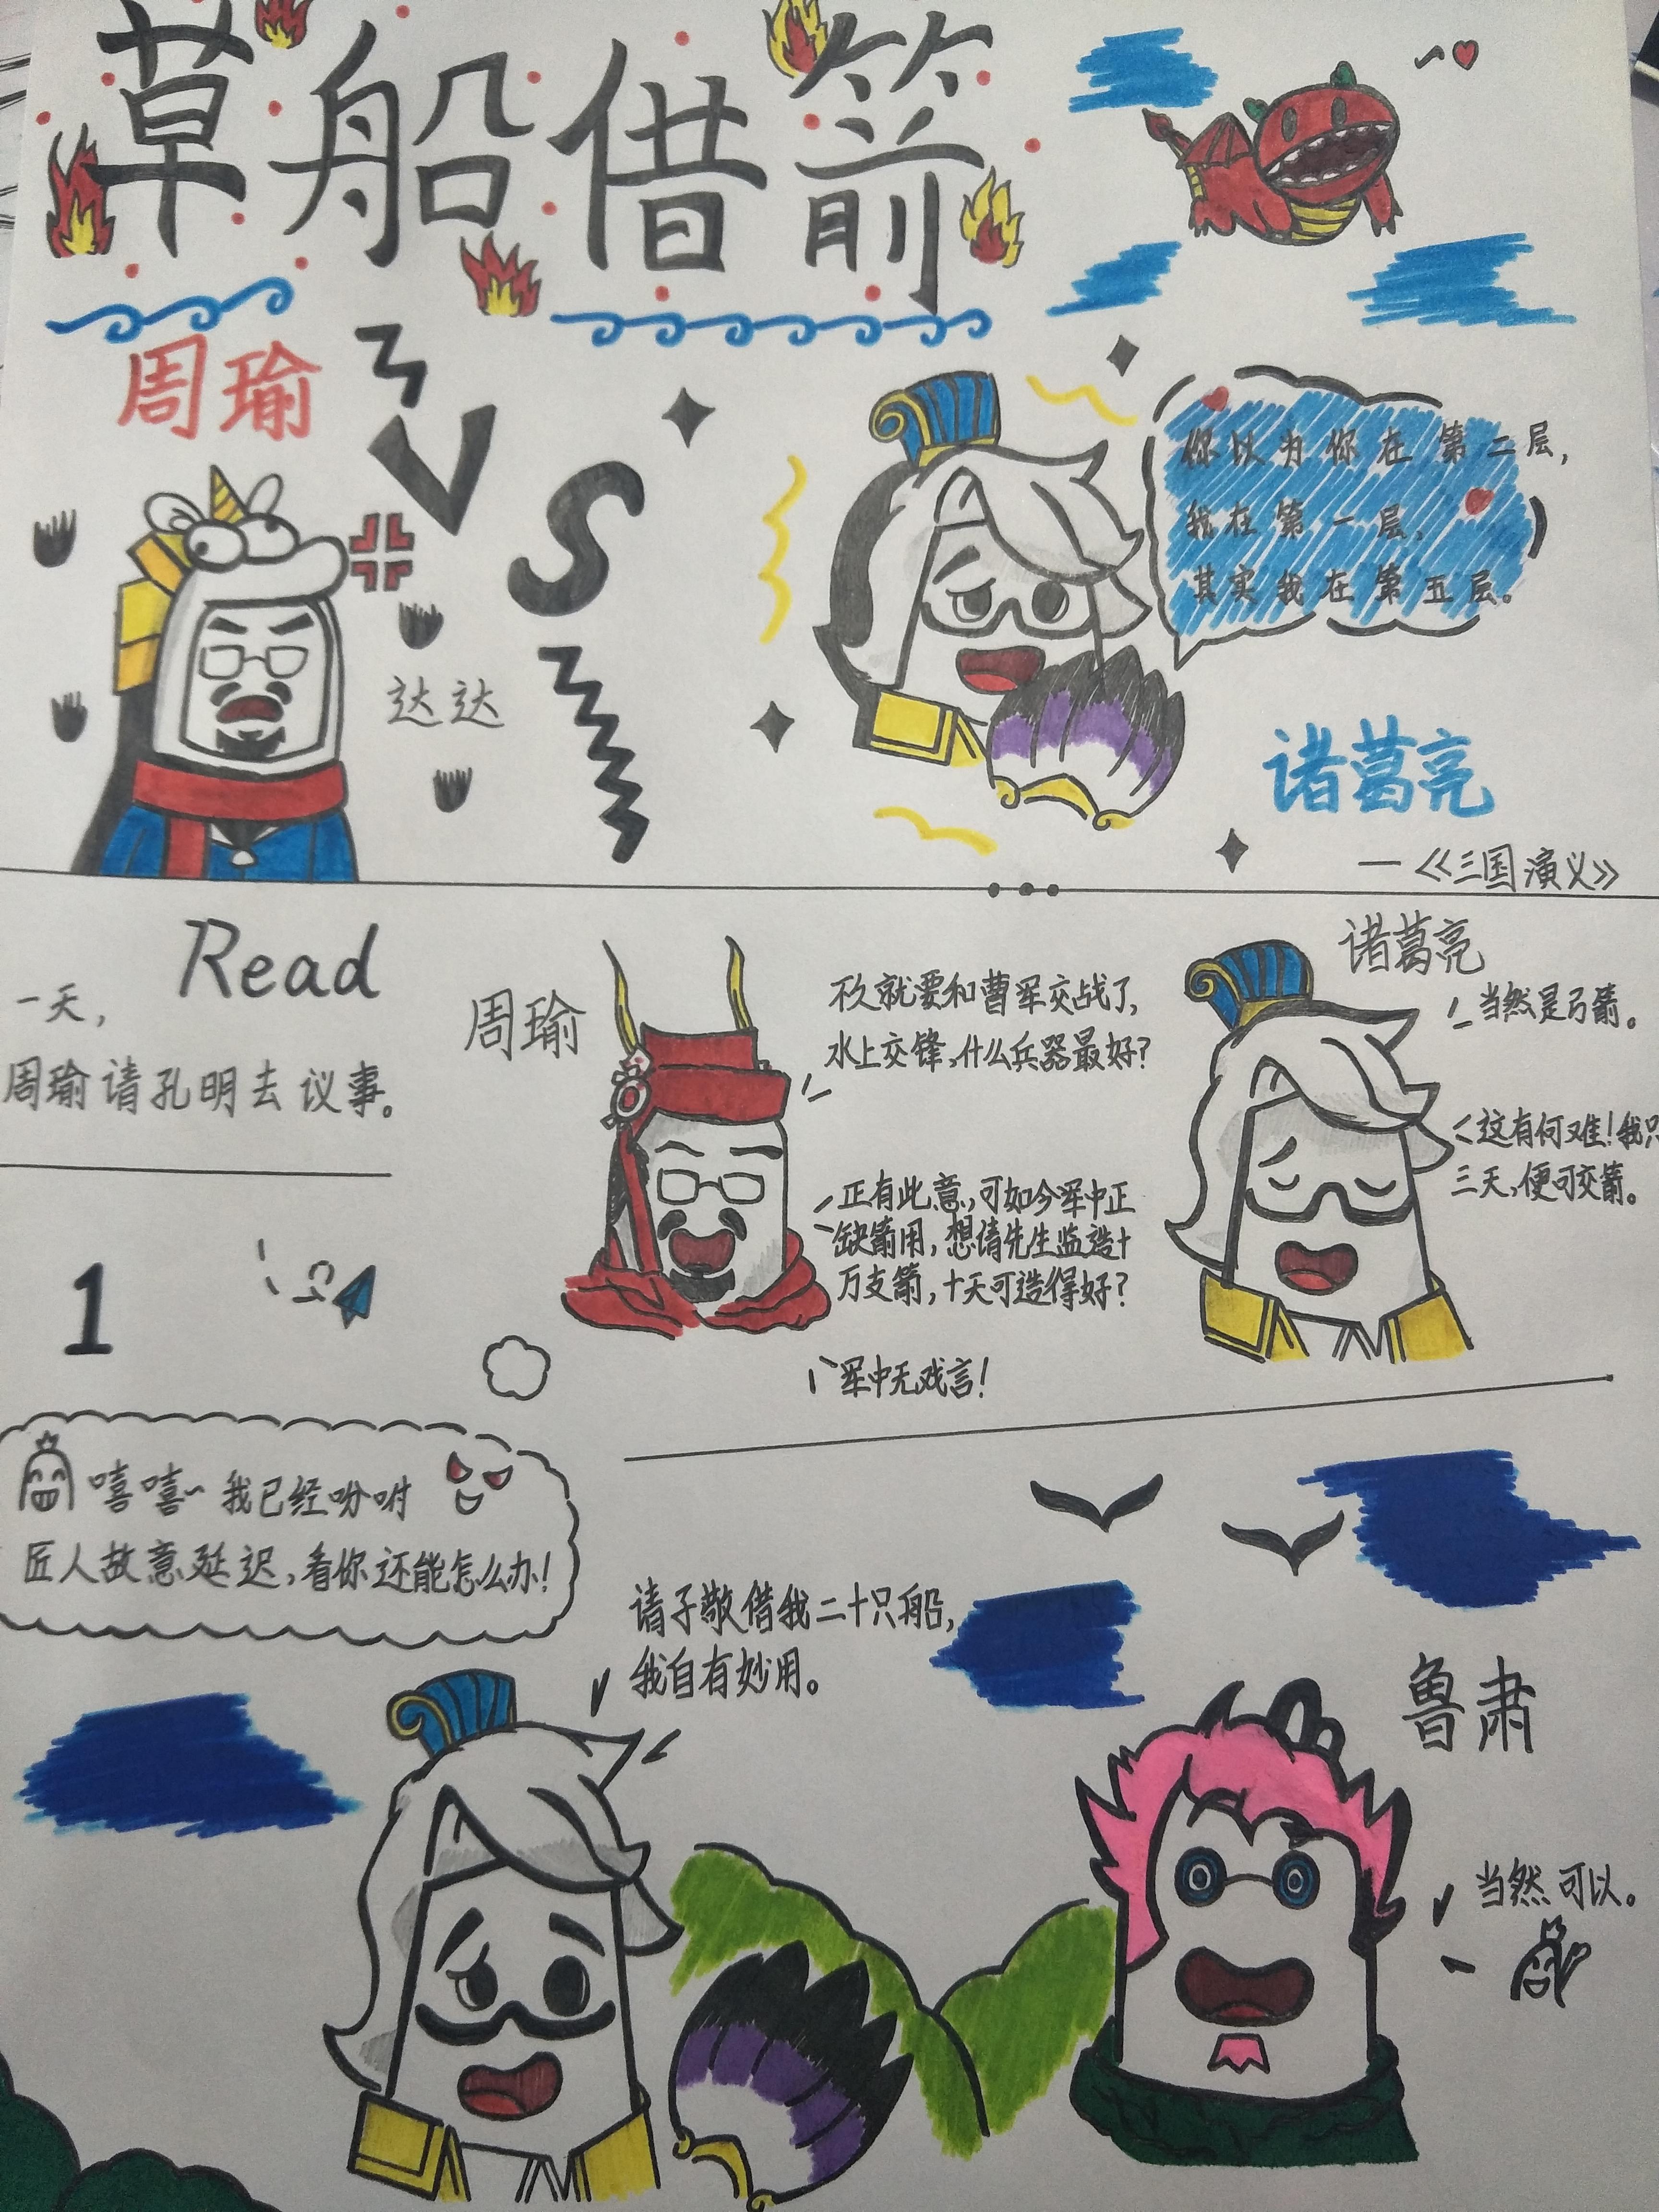 草船借箭
周瑜
VS
达达
你以为你在第二层,
我在第一层,
其实我在第五层。
诸葛亮
—《三国演义》
Read
一天,
周瑜请孔明去议事。
周瑜
不久就要和曹军交战了,
水上交锋,什么兵器最好?
诸葛亮
当然是弓箭。
正有此意,可如今军中正
缺箭用,想请先生监造十
万支箭,十天可造得好?
这有何难!我只
三天,便可交箭。
军中无戏言!
1
嘻嘻~我已经吩咐
匠人故意延迟,看你还能怎么办!
请子敬借我二十只船,
我自有妙用。
鲁肃
当然可以。